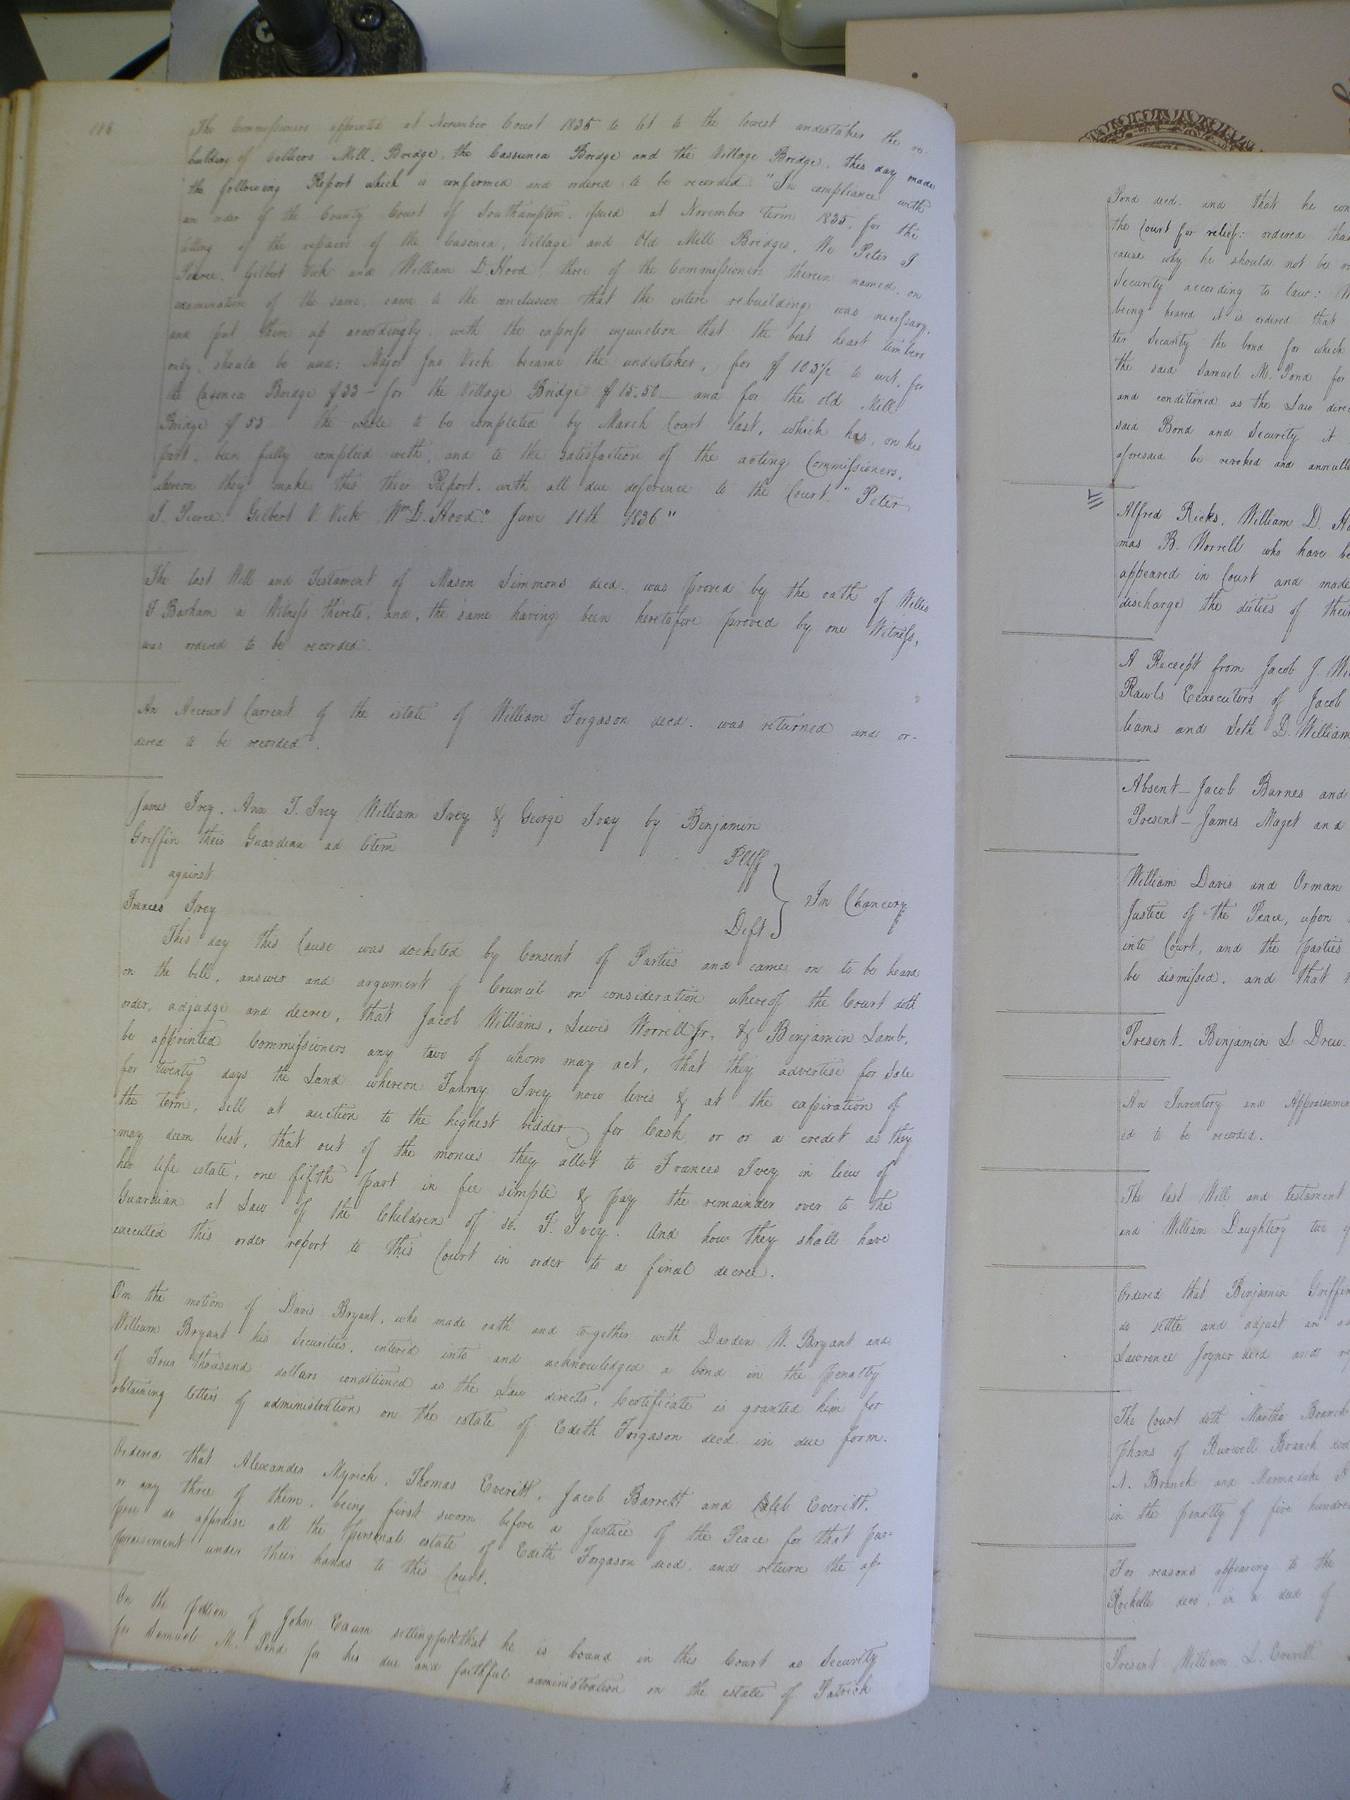 The Commissioners appointed at November Court 1835 to let to the lowest undertaker the re-
building of Mill Bridge, the Cassonea Bridge and the Village Bridge, this day made
the following Report which is confirmed and ordered to be recorded. "In compliance with
an order of the County Court of Southampton, issued at November term 1835, for the
letting of the repairs of the Casonea, Village and Old Mill Bridges, We Peter J
Pearce, Gilbert Vick and William D. Hood three of the Commissioners therein named, on
examination of the same, came to the conclusion that the entire rebuilding was necessary,
and put them up accordingly, with the express injunction that the best heart timbers
only should be used: Major Jno Vick became the undertaker, for $ 103½ to wit, for
the Casonea Bridge $33 - for the Village Bridge $15.50 - and for the old Mill
Bridge $55 the whole to be completed by March Court last, which has, on his
part, been fully complied with, and to the satisfaction of the acting Commissioners,
whereon they make this their Report, with all due deference to the Court. "Peter
J. Pearce. Gilbert V. Vick Wm D. Hood." June 11th 1836"
The last Will and Testament of Mason Simmons decd. was proved by the oath of Willis
J Barham a Witness thereto, and, the same having been heretofore proved by one Witness,
was ordered to be recorded.
An Account Current of the estate of William Forgason decd. was returned and or-
dered to be recorded.
James Ivey, Ann T. Ivey William Ivey & George Ivey by Benjamin
Griffin their Guardian ad litem Pltff
against In Chancery
Frances Ivey Deft
This day this Cause was docketed by Consent of Parties and came on to be heard
on the bill, answer and argument of Council on consideration whereof the Court doth
order, adjudge and decree, that Jacob Williams, Lewis Worrell Jr. & Benjamin Lamb,
be appointed Commissioners any two of whom may act, that they advertise for sale
for twenty days the Land whereon Fanny Ivey now lives & at the expiration of
the term, sell at auction to the highest bidder for Cash or or a credit as they
may deem best, that out of the monies they allot to Frances Ivey in lieu of
her life estate, one fifth part in fee simple & pay the remainder over to the
Guardian at Law of the Children of sd. F. Ivey. And how they shall have
executed this order report to this Court in order to a final decree.
On the motion of Davis Bryant, who made oath and together with Darden W. Bryant and
William Bryant his Securities, entered into and acknowledged a bond in the penalty
of Four thousand dollars conditioned as the Law directs, Certificate is granted him for
obtaining letters of administration on the estate of Edith Forgason decd. in due form.
Ordered that Alexander Myrick, Thomas Everitt, Jacob Barrett and Caleb Everitt,
or any three of them, being first sworn before a Justice of the Peace for that pur-
pose do appraise all the personal estate of Edith Forgason decd. and return the ap-
praisement under their hands to this Court.
On the petition of John settingforth that he is bound in this Court as Security
for Samuel M. Pond for his due and faithful administration on the estate of Patrick
Pond decd. and that he con
the Court for relief: ordered tha
cause why he should not be
Security according to law:
being heard it is ordered that
ter Security the bond for which
the said Samuel M. Pond for
and conditioned as the Law direc
said Bond and Security it
aforesaid be revoked and annulle
Alfred Ricks, William D. Ho
mas B. Worrell who have be
appeared in Court and made
discharge the duties of their
A Receipt from Jacob J. W
Rawls Executors of Jacob
liams and Seth D. William
Absent - Jacob Barnes and
Present - James Maget and
William Davis and Orman
Justice of the Peace, upon
into Court, and the parties
be dismissed, and that
Present - Benjamin L Drew.
An Inventory and Appraisemen
ed to be recorded.
The last Will and testament
and William Daughtrey two
Ordered that Benjamin Griffin
do settle and adjust an
Lawrence Joyner decd and
The Court doth Martha Branch
phans of Burwell Branch
N. Branch and Marmaduke
in the penalty of five hundre
For reasons appearing to the
Rochelle decd. in a deed of
Present William L. Everett